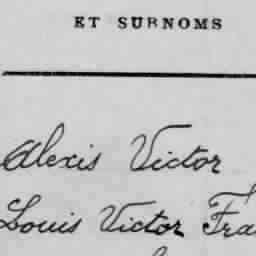 ET SURNOMS
Alexis Victor
Louis Victor